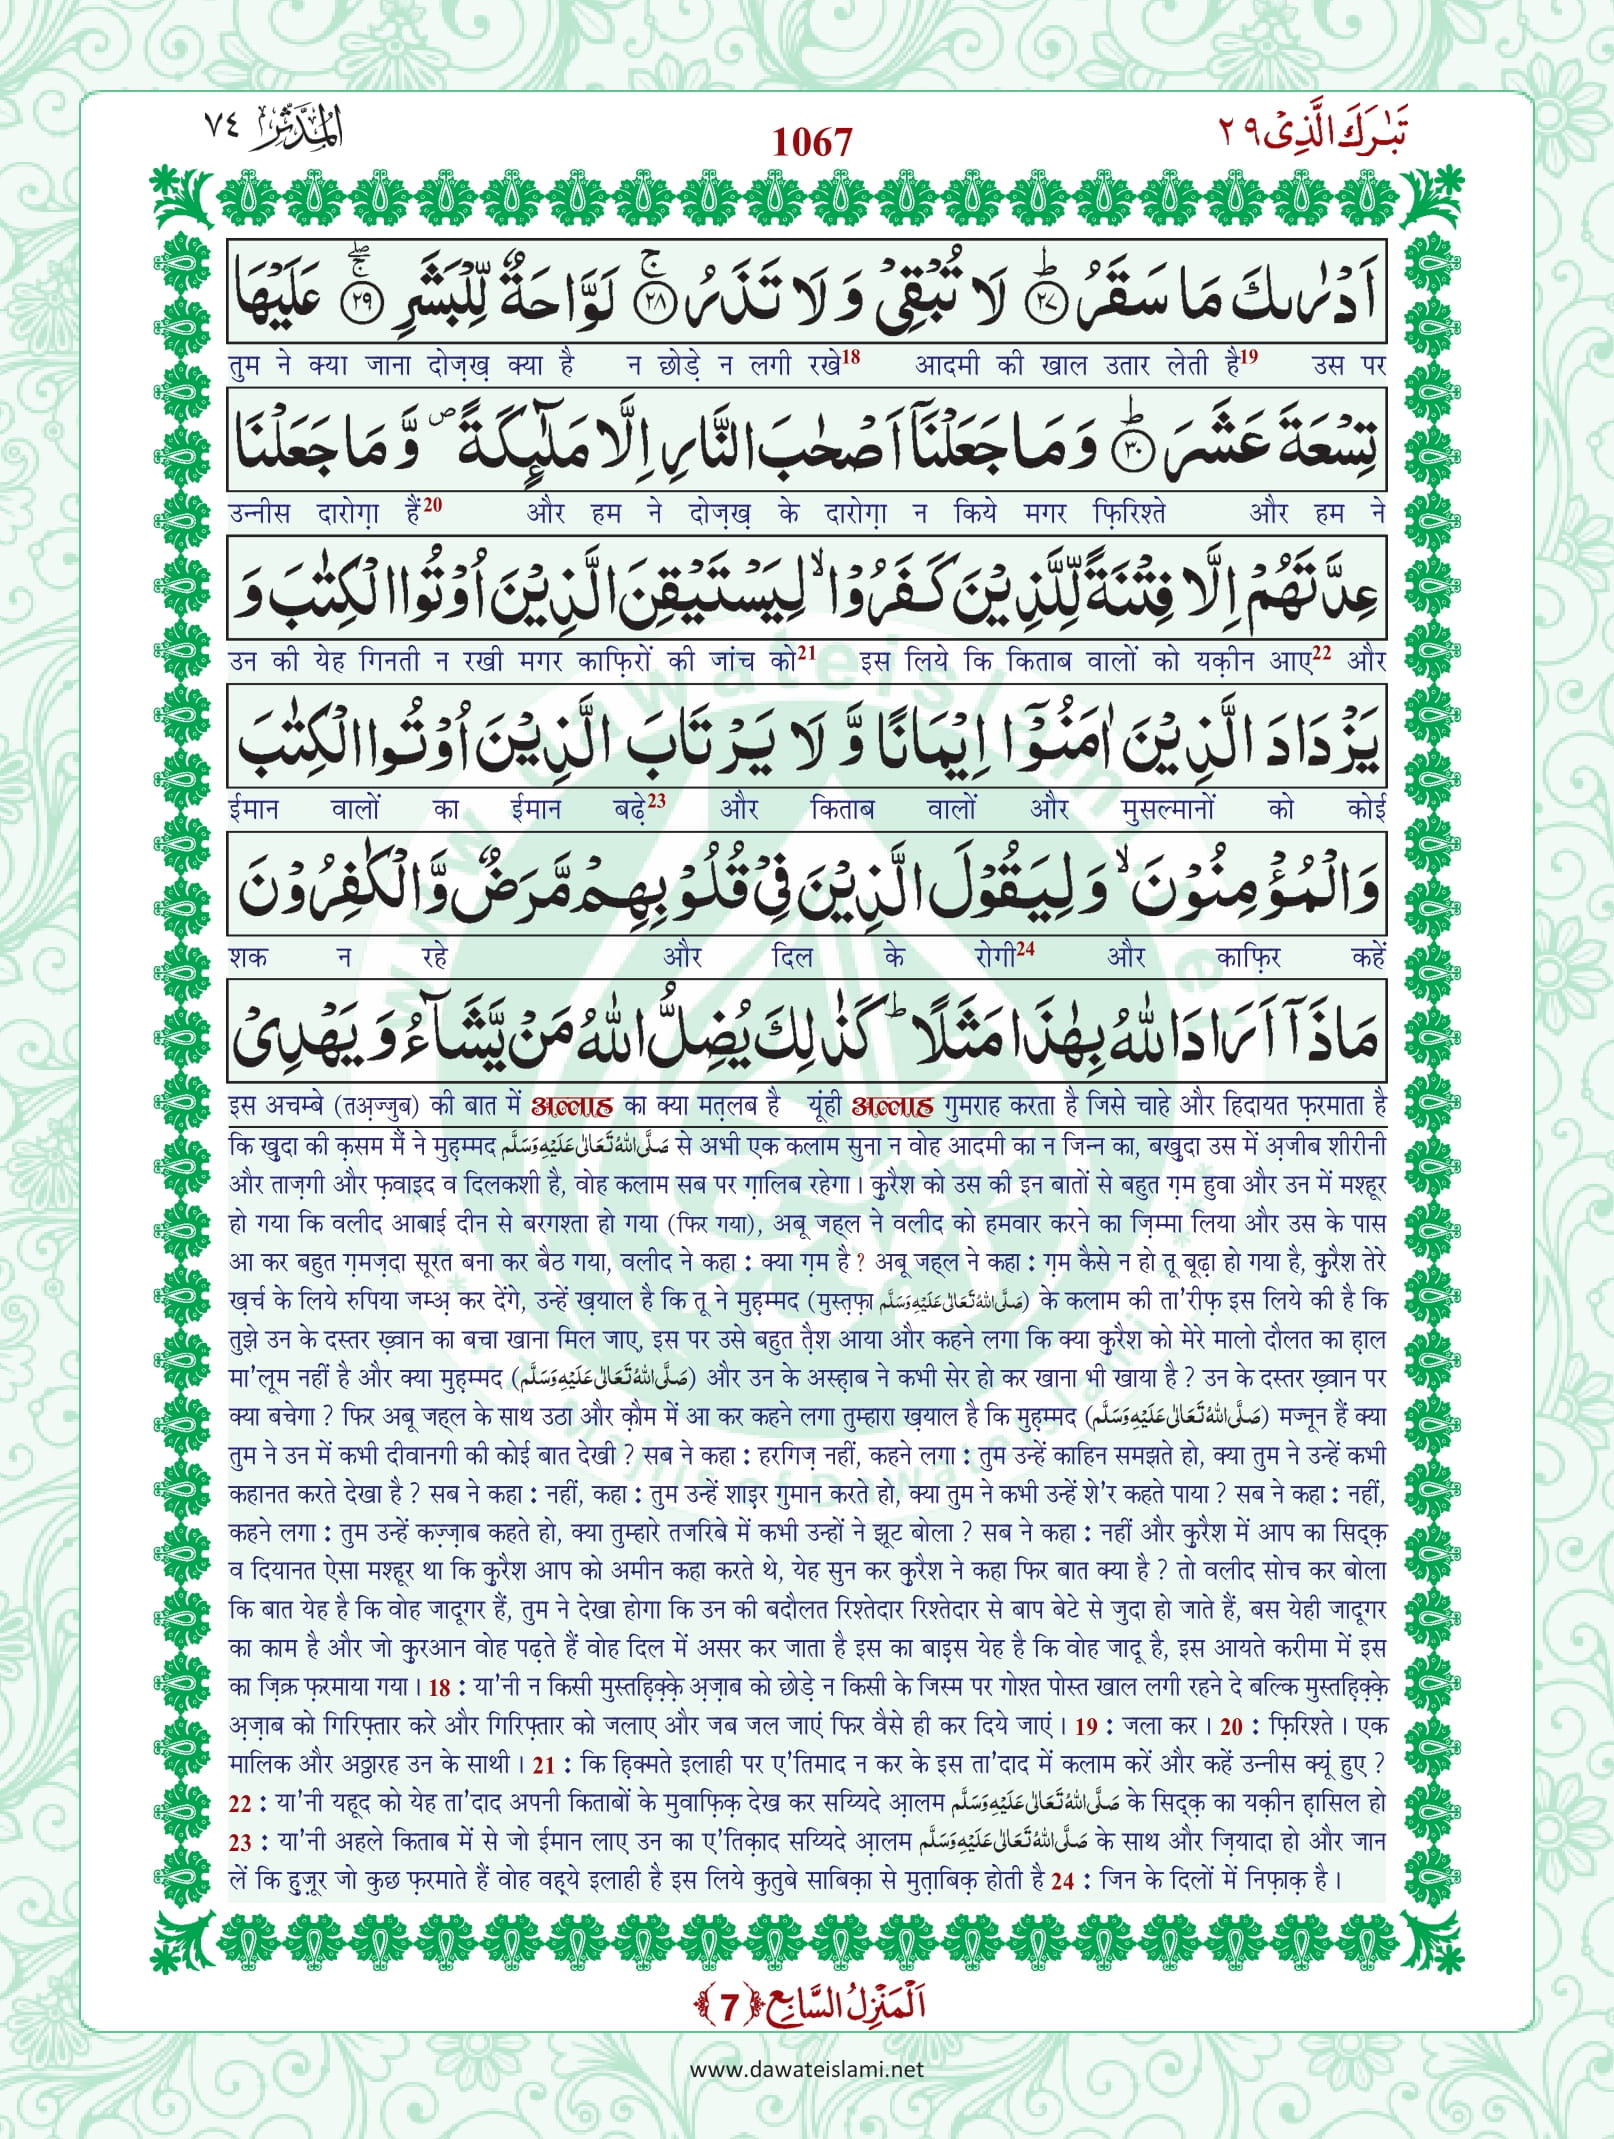 المدثر ٧٤
1067
تَبٰرَكَ الَّذِیْ ٢٩
اَدْرٰىكَ مَا سَقَرُؕ(۲۷) لَا تُبْقِیْ وَ لَا تَذَرُۚ(۲۸) لَوَّاحَةٌ لِّلْبَشَرِۚۖ(۲۹) عَلَیْهَا
तुम ने क्या जाना दोज़ख़ क्या है न छोड़े न लगी रखे18 आदमी की खाल उतार लेती है19 उस पर
تِسْعَةَ عَشَرَؕ(۳۰) وَ مَا جَعَلْنَاۤ اَصْحٰبَ النَّارِ اِلَّا مَلٰٓىٕكَةً۪ وَّ مَا جَعَلْنَا
उन्नीस दारोग़ा हैं20 और हम ने दोज़ख़ के दारोग़ा न किये मगर फ़िरिश्ते और हम ने
عِدَّتَهُمْ اِلَّا فِتْنَةً لِّلَّذِیْنَ كَفَرُوْاۙ لِیَسْتَیْقِنَ الَّذِیْنَ اُوْتُوا الْكِتٰبَ وَ
उन की येह गिनती न रखी मगर काफ़िरों की जांच को21 इस लिये कि किताब वालों को यक़ीन आए22 और
یَزْدَادَ الَّذِیْنَ اٰمَنُوْۤا اِیْمَانًا وَّ لَا یَرْتَابَ الَّذِیْنَ اُوْتُوا الْكِتٰبَ
ईमान वालों का ईमान बढ़े23 और किताब वालों और मुसल्मानों को कोई
وَ الْمُؤْمِنُوْنَۙ وَ لِیَقُوْلَ الَّذِیْنَ فِیْ قُلُوْبِهِمْ مَّرَضٌ وَّ الْكٰفِرُوْنَ
शक न रहे और दिल के रोगी24 और काफ़िर कहें
مَا ذَاۤ اَرَادَ اللّٰهُ بِهٰذَا مَثَلًاؕ كَذٰلِكَ یُضِلُّ اللّٰهُ مَنْ یَّشَآءُ وَ یَهْدِیْ
इस अचम्बे (तअ़ज्जुब) की बात में अल्लाह का क्या मत़लब है यूंही अल्लाह गुमराह करता है जिसे चाहे और हिदायत फ़रमाता है
कि खुदा की क़सम मैं ने मुह़म्मद صَلَّى اللّٰهُ تَعَالٰى عَلَيْهِ وَسَلَّم से अभी एक कलाम सुना न वोह आदमी का न जिन्न का, बखुदा उस में अ़जीब शीरीनी
और ताज़गी और फ़वाइद व दिलकशी है, वोह कलाम सब पर ग़ालिब रहेगा। कुरैश को उस की इन बातों से बहुत ग़म हुवा और उन में मश्हूर
हो गया कि वलीद आबाई दीन से बरगश्ता हो गया (फिर गया), अबू जह्ल ने वलीद को हमवार करने का ज़िम्मा लिया और उस के पास
आ कर बहुत ग़मज़दा सूरत बना कर बैठ गया, वलीद ने कहा : क्या ग़म है ? अबू जह्ल ने कहा : ग़म कैसे न हो तू बूढ़ा हो गया है, कुरैश तेरे
ख़र्च के लिये रुपिया जम्अ़ कर देंगे, उन्हें ख़याल है कि तू ने मुह़म्मद (मुस्त़फ़ा صَلَّى اللّٰهُ تَعَالٰى عَلَيْهِ وَسَلَّم) के कलाम की ता'रीफ़ इस लिये की है कि
तुझे उन के दस्तर ख़्वान का बचा खाना मिल जाए, इस पर उसे बहुत त़ैश आया और कहने लगा कि क्या क़ुरैश को मेरे मालो दौलत का ह़ाल
मा'लूम नहीं है और क्या मुह़म्मद (صَلَّى اللّٰهُ تَعَالٰى عَلَيْهِ وَسَلَّم) और उन के अस्ह़ाब ने कभी सेर हो कर खाना भी खाया है ? उन के दस्तर ख़्वान पर
क्या बचेगा ? फिर अबू जह्ल के साथ उठा और क़ौम में आ कर कहने लगा तुम्हारा ख़याल है कि मुह़म्मद (صَلَّى اللّٰهُ تَعَالٰى عَلَيْهِ وَسَلَّم) मज्नून हैं क्या
तुम ने उन में कभी दीवानगी की कोई बात देखी ? सब ने कहा : हरगिज़ नहीं, कहने लगा : तुम उन्हें काहिन समझते हो, क्या तुम ने उन्हें कभी
कहानत करते देखा है ? सब ने कहा : नहीं, कहा : तुम उन्हें शाइर गुमान करते हो, क्या तुम ने कभी उन्हें शे'र कहते पाया ? सब ने कहा : नहीं,
कहने लगा : तुम उन्हें कज़्ज़ाब कहते हो, क्या तुम्हारे तजरिबे में कभी उन्हों ने झूट बोला ? सब ने कहा : नहीं और क़ुरैश में आप का सिद्क़
व दियानत ऐसा मश्हूर था कि क़ुरैश आप को अमीन कहा करते थे, येह सुन कर क़ुरैश ने कहा फिर बात क्या है ? तो वलीद सोच कर बोला
कि बात येह है कि वोह जादूगर हैं, तुम ने देखा होगा कि उन की बदौलत रिश्तेदार रिश्तेदार से बाप बेटे से जुदा हो जाते हैं, बस येही जादूगर
का काम है और जो क़ुरआन वोह पढ़ते हैं वोह दिल में असर कर जाता है इस का बाइस येह है कि वोह जादू है, इस आयते करीमा में इस
का ज़िक्र फ़रमाया गया। 18 : या'नी न किसी मुस्तह़िक़्क़े अ़ज़ाब को छोड़े न किसी के जिस्म पर गोश्त पोस्त खाल लगी रहने दे बल्कि मुस्तह़िक़्क़े
अ़ज़ाब को गिरिफ़्तार करे और गिरिफ़्तार को जलाए और जब जल जाएं फिर वैसे ही कर दिये जाएं। 19 : जला कर। 20 : फ़िरिश्ते। एक
मालिक और अठ्ठारह उन के साथी। 21 : कि ह़िक्मते इलाही पर ए'तिमाद न कर के इस ता'दाद में कलाम करें और कहें उन्नीस क्यूं हुए ?
22 : या'नी यहूद को येह ता'दाद अपनी किताबों के मुवाफ़िक़ देख कर सय्यिदे आ़लम صَلَّى اللّٰهُ تَعَالٰى عَلَيْهِ وَسَلَّم के सिद्क़ का यक़ीन ह़ासिल हो
23 : या'नी अहले किताब में से जो ईमान लाए उन का ए'तिक़ाद सय्यिदे आ़लम صَلَّى اللّٰهُ تَعَالٰى عَلَيْهِ وَسَلَّم के साथ और ज़ियादा हो और जान
लें कि हुज़ूर जो कुछ फ़रमाते हैं वोह वह़्ये इलाही है इस लिये कुतुबे साबिक़ा से मुत़ाबिक़ होती है 24 : जिन के दिलों में निफ़ाक़ है।
اَلْمَنْزِلُ السَّابِع ﴿7﴾
www.dawateislami.net